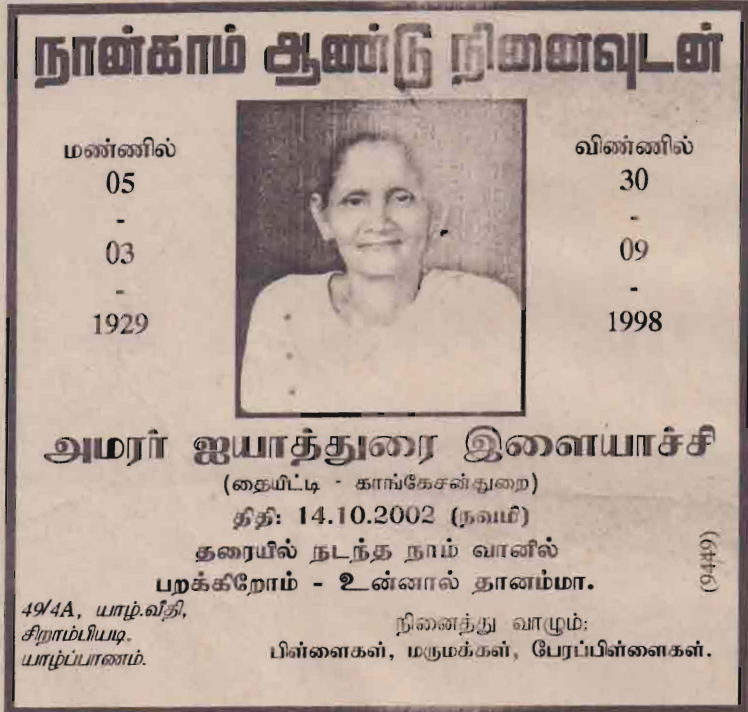 நான்காம் ஆண்டு நினைவுடன்
மண்ணில்
05
-
03
-
1929
விண்ணில்
30
-
09
-
1998
அமரர் ஐயாத்துரை இளையாச்சி
(தையிட்டி - காங்கேசன்துறை)
திதி: 14.10.2002 (நவமி)
தரையில் நடந்த நாம் வானில்
பறக்கிறோம் - உன்னால் தானம்மா.
(9449)
49/4A, யாழ்.வீதி,
சிறாம்பியடி,
யாழ்ப்பாணம்.
நினைத்து வாழும்:
பிள்ளைகள், மருமக்கள், பேரப்பிள்ளைகள்.